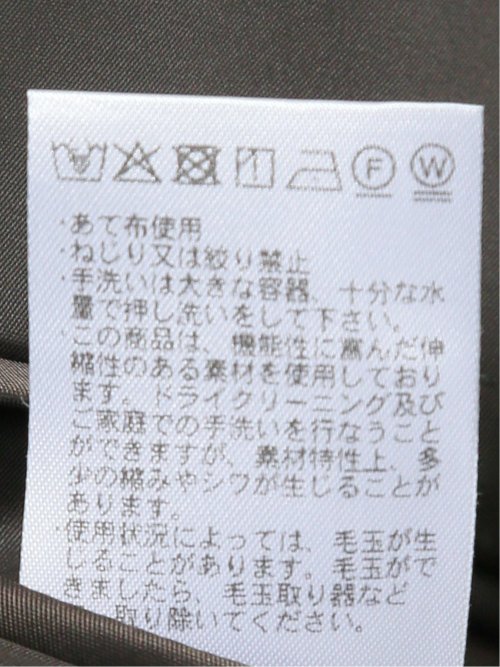 F W
・あて布使用
・ねじり又は絞り禁止
・手洗いは大きな容器、十分な水
量で押し洗いをして下さい。
・この商品は、機能性に富んだ伸
縮性のある素材を使用しており
ます。ドライクリーニング及び
ご家庭での手洗いを行なうこと
ができますが、素材特性上、多
少の縮みやシワが生じることが
あります。
・使用状況によっては、毛玉が生
じることがあります。毛玉がで
きましたら、毛玉取り器など
取り除いてください。